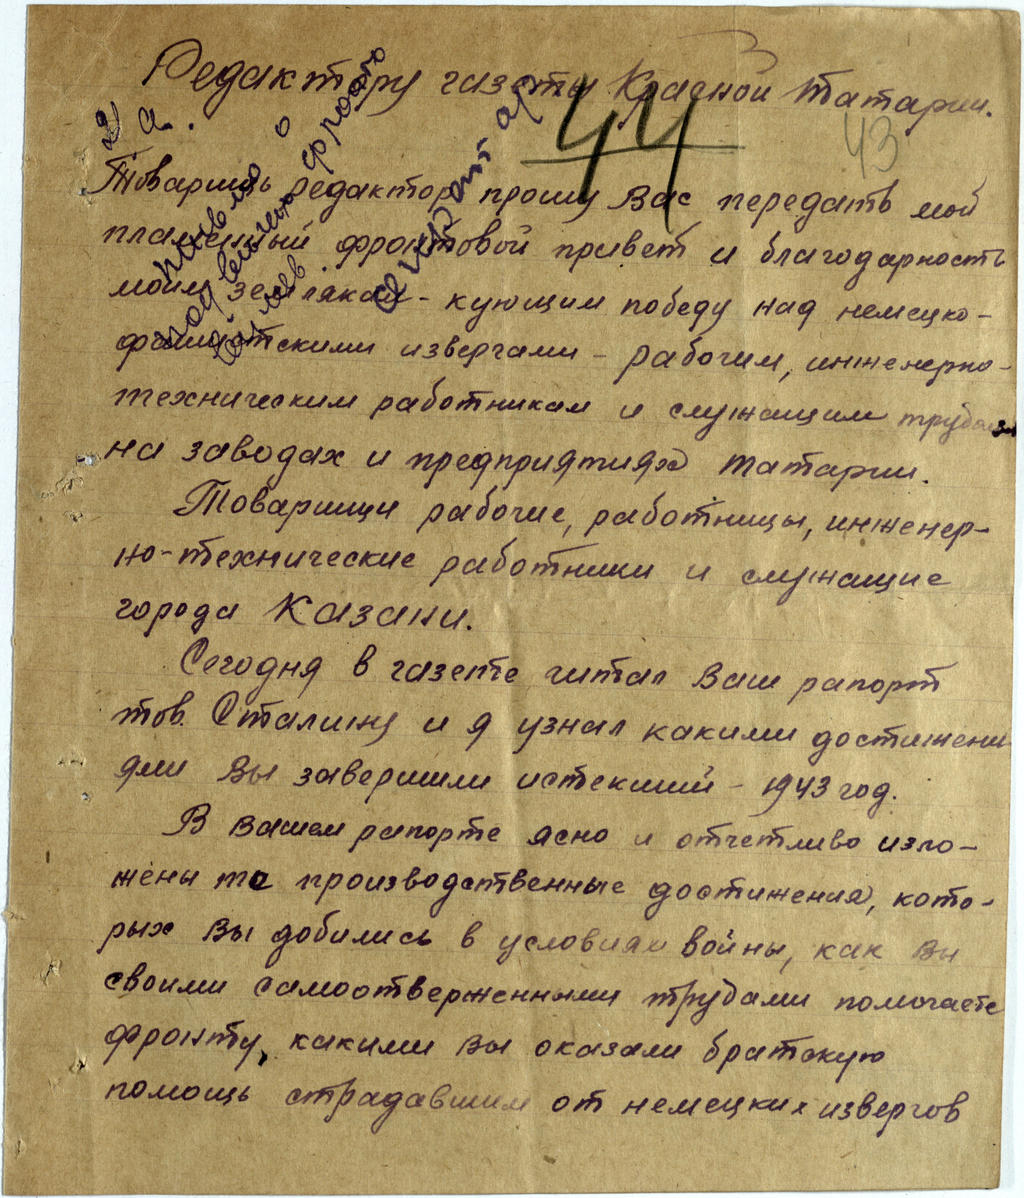 Редактору газеты Красной Татарии.
44
43
Товарищь редактор прошу Вас передать мой
пламенный фронтовой привет и благодарность
моим землякам - кующим победу над немецко-
фашистскими извергами - рабочим, инженерно-
техническим работникам и служащим
на заводах и предприятиях Татарии.
Товарищи рабочие, работницы, инженер-
но-технические работники и служащие
города Казани.
Сегодня в газете читал Ваш рапорт
тов. Сталину и я узнал какими достижени
ями Вы завершили истекший - 1943 год.
В вашем рапорте ясно и отчетливо изло-
жены те производственные достижения, кото-
рых Вы добились в условиях войны, как Вы
своими самоотверженными трудами помогаете
фронту, какими вы оказали братскую
помощь страдавшим от немецких извергов